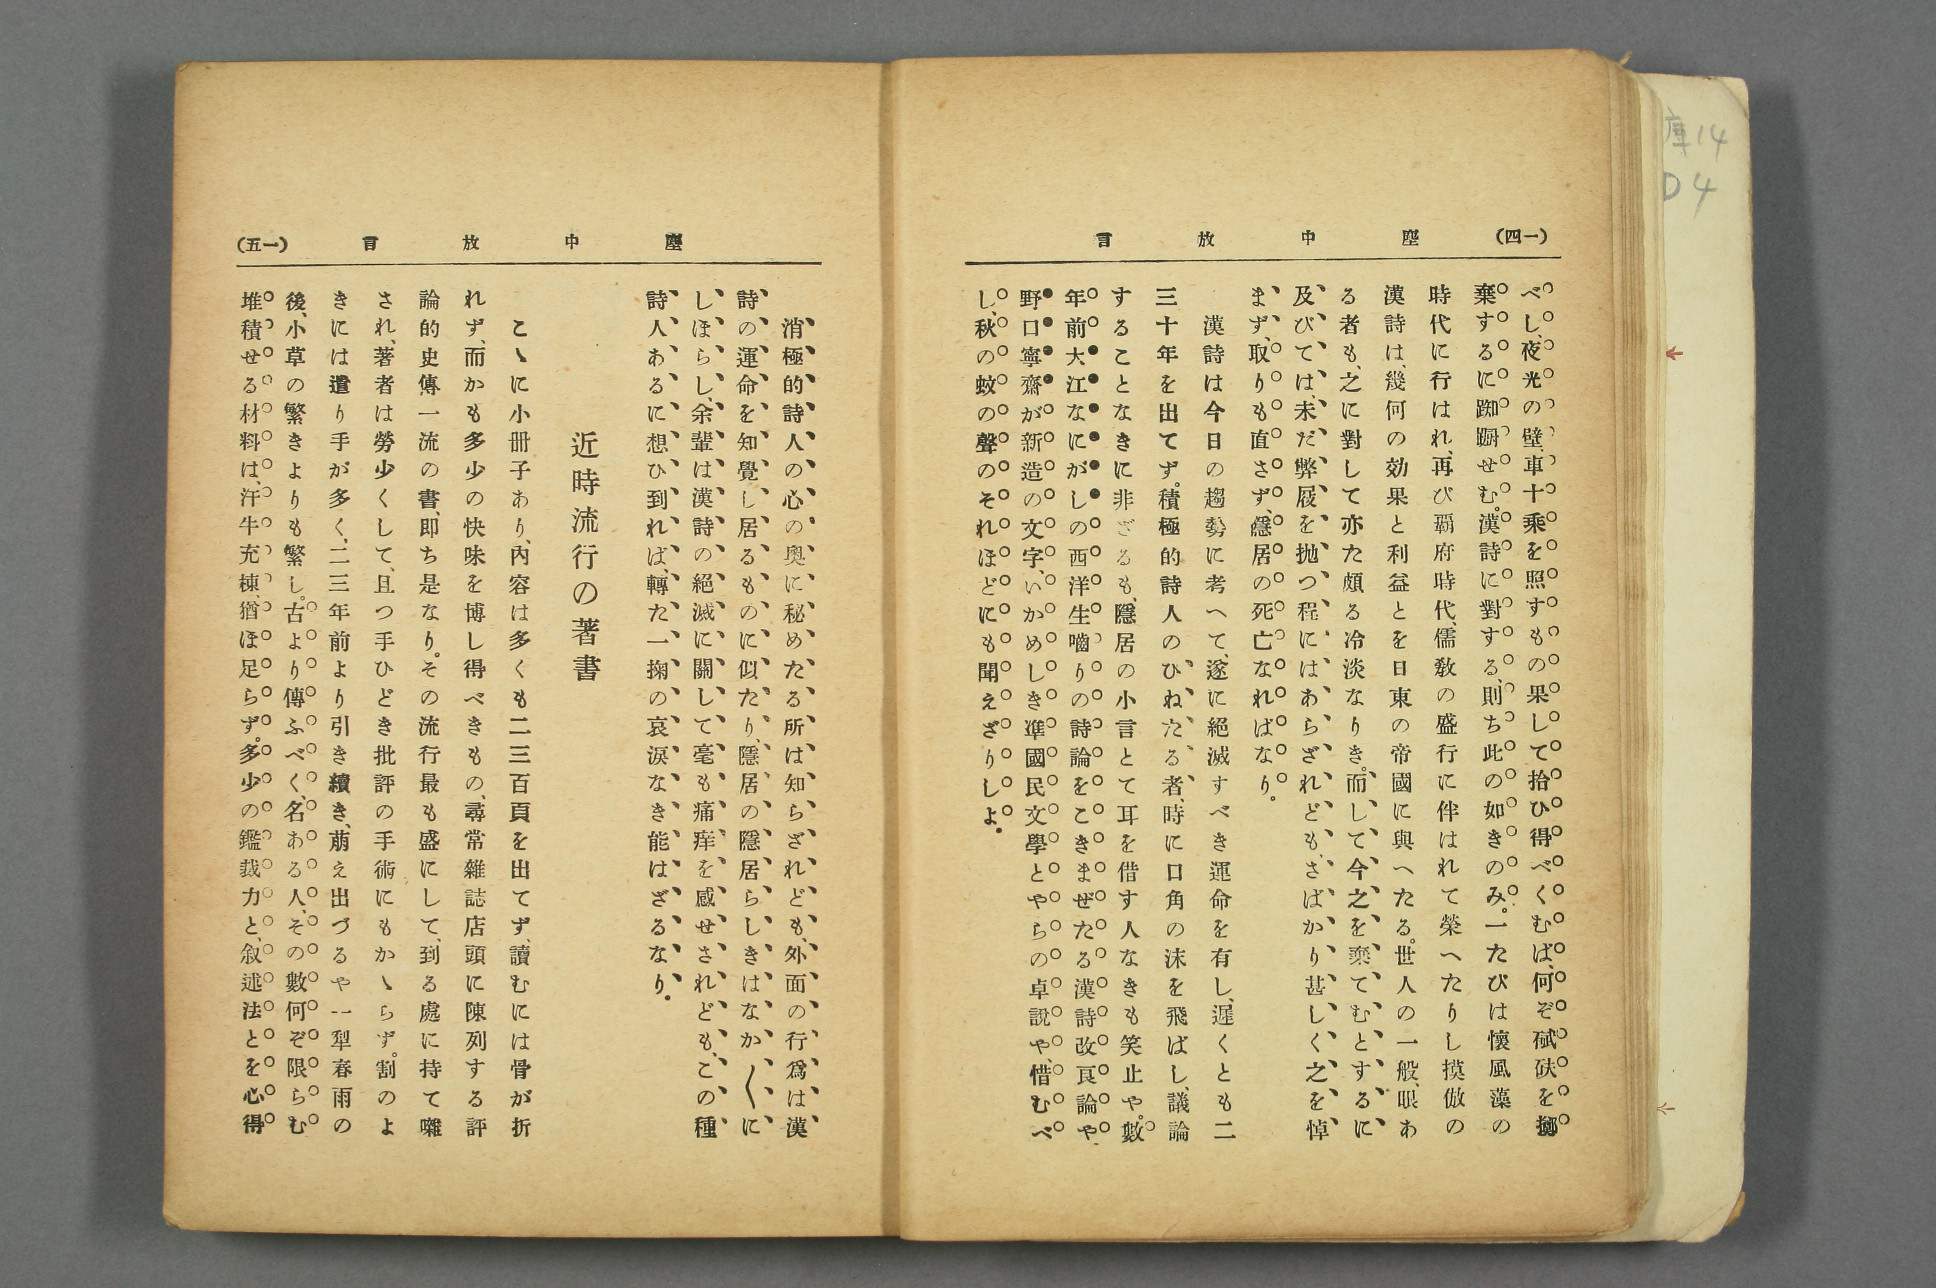 (一四)
塵中放言
べし、夜光の壁、車十乘を照すもの果して拾ひ得べくむば、何ぞ碔砆を擲
棄するに踟蹰せむ。漢詩に對する、則ち此の如きのみ。一たびは懷風藻の
時代に行はれ、再び覇府時代、儒敎の盛行に伴はれて榮へたりし摸倣の
漢詩は、幾何の効果と利益とを日東の帝國に與へたる。世人の一般、眼あ
る者も、之に對して亦た頗る冷淡なりき。而して今之を棄てむとするに
及びては、未だ弊履を拋つ程にはあらざれども、さばかり甚しく之を悼
まず、取りも直さず、隱居の死亡なればなり。
漢詩は今日の趨勢に考へて、遂に絕滅すべき運命を有し、遲くとも二
三十年を出てず。積極的詩人のひねたる者、時に口角の沫を飛ばし、議論
することなきに非ざるも、隱居の小言とて耳を借す人なきも笑止や。數
年前大江なにがしの西洋生嚙りの詩論をこきまぜたる漢詩改良論や、
野口寧齋が新造の文字、いかめしき準國民文學とやらの卓說や、惜むべ
し、秋の蚊の聲のそれほどにも聞えざりしよ。
塵中放言
(一五)
消極的詩人の心の奧に秘めたる所は知らざれども、外面の行爲は漢
詩の運命を知覺し居るものに似たり、隱居の隱居らしきはなか〳〵に
しほらし、余輩は漢詩の絕滅に關して毫も痛痒を感せされども、この種
詩人あるに想ひ到れば、轉た一掬の哀淚なき能はざるなり。
近時流行の著書
こゝに小册子あり、內容は多くも二三百頁を出てず、讀むには骨が折
れず、而かも多少の快味を博し得べきもの、尋常雜誌店頭に陳列する評
論的史傳一流の書、卽ち是なり。その流行最も盛にして、到る處に持て囃
され、著者は勞少くして、且つ手ひどき批評の手術にもかゝらず。割のよ
きには遣り手が多く、二三年前より引き續き、萠え出づるや一犁春雨の
後、小草の繁きよりも繁し。古より傳ふべく、名ある人、その數何ぞ限らむ
堆積せる材料は、汗牛充棟、猶ほ足らず。多少の鑑裁力と、敍述法とを心得